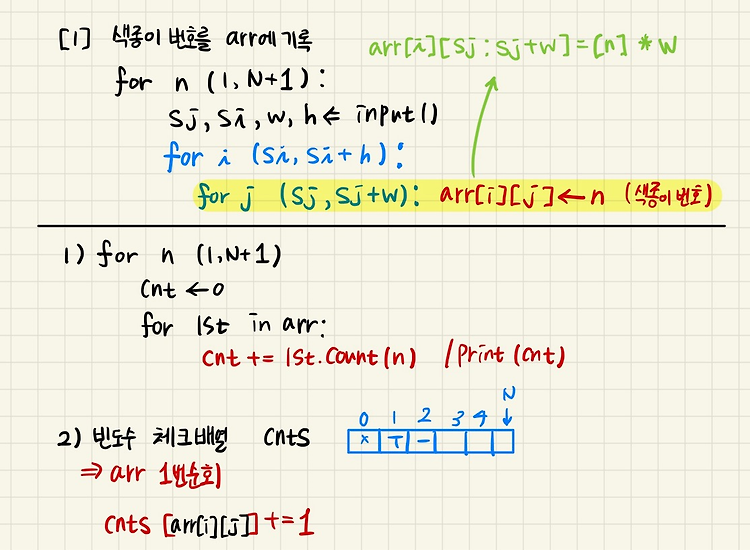 [1] 색종이 번호를 arr에 기록
arr[i][sj:sj+w]=[n]*w
for n (1,N+1):
sj, si, w, h ⇐ input()
for i (si, si+h):
for j (sj, sj+w): arr[i][j]←n (색종이 번호)
1) for n (1,N+1)
cnt ←0
for lst in arr:
cnt += lst.count(n) /print(cnt)
N
0 1 2 3 4 ↓
x T -
2) 빈도수 체크배열 cnts
⇒ arr 1번순회
cnts [arr[i][j]] +=1